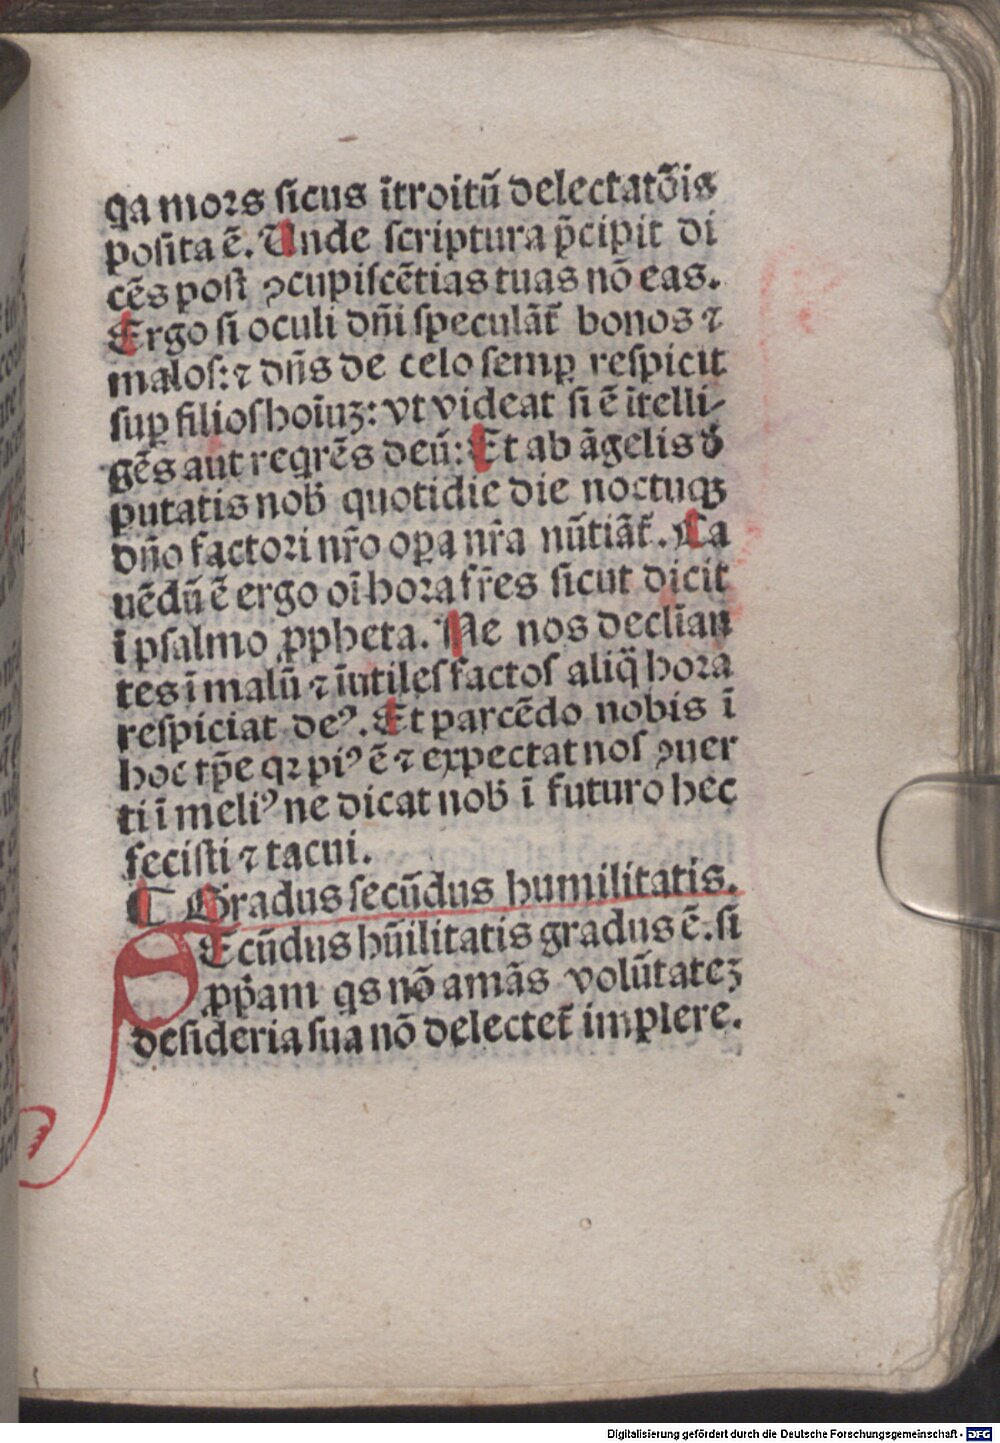 qa mors sicus ītroitū delectatōis
posita ē. Unde scriptura p̄cipit di
cēs post̄ ꝯcupiscētias tuas nō eas.
Ergo si oculi dn̄i speculāt̄ bonos ⁊
malos: ⁊ dn̄s de celo semꝑ respicit
suꝑ filios hoīuꝫ: vt videat si ē ītelli⸗
gēs aut reqrēs deū: Et ab āgelis d̓
putatis nob̄ quotidie die noctuqꝫ
dn̄o factori nr̄o oꝑa nr̄a nūtiāt̄. Ca
uēdū ē ergo oī hora fr̄es sicut dicit
ī psalmo ꝓpheta. Ne nos declīan
tes ī malū ⁊ īutiles factos aliq̄ hora
respiciat deꝰ. Et parcēdo nobis ī
hoc tp̄e qꝛ piꝰ ē ⁊ expectat nos ꝯuer
ti ī meliꝰ ne dicat nob̄ ī futuro hec
fecisti ⁊ tacui.
¶ Gradus secūdus humilitatis.
SEcūdus hūilitatis gradus ē. si
ꝓp̄am qs nō amās volūtateꝫ
desideria sua nō delectet̄ implere.
Digitalisierung gefördert durch die Deutsche Forschungsgemeinschaft - DFG